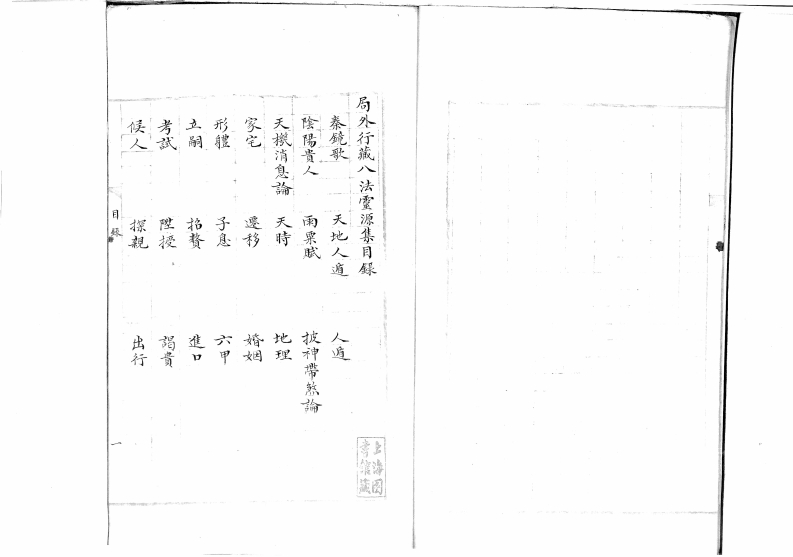 局外行藏八法靈源集目録
秦鏡歌 天地人遁 人遁
陰陽貴人 雨粟賦 披神帶煞論
天機消息論 天時 地理
家宅 遷移 婚姻
形體 子息 六甲
立嗣 招贅 進口
考試 陞授 謁貴
候人 探親 出行
目録
一
上海圖書館藏